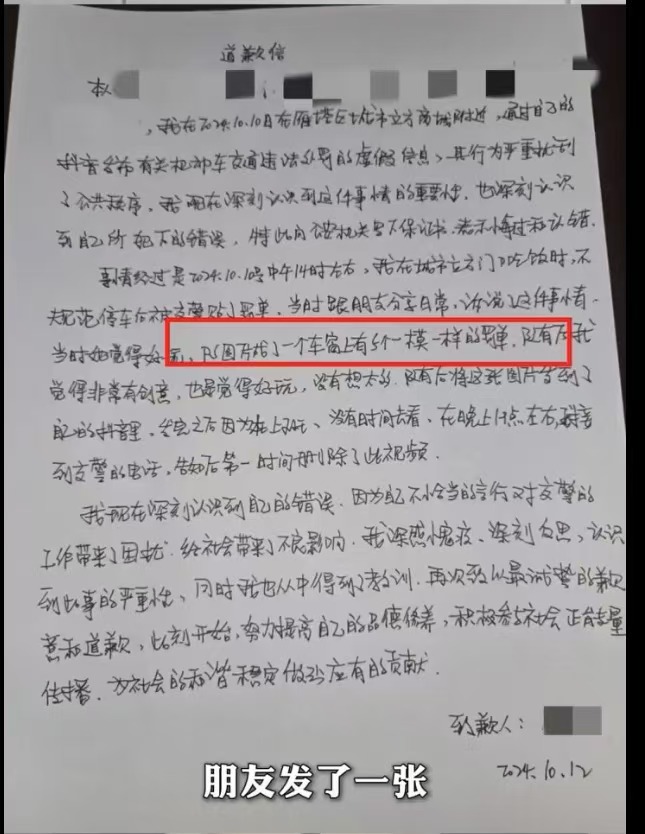 道歉信
本人
，我在2024.10.10日在雁塔区城市立方商城附近，通过自己的
抖音发布有关机动车交通违法处罚的虚假信息，其行为严重扰乱
了公共秩序，我现在深刻认识到这件事情的重要性，也深刻认识
到自己所犯下的错误，特此向公安机关写下保证书，表示悔过和认错。
事情经过是2024.10.10号中午14时左右，我在城市立方门口吃饭时，不
规范停车后被交警贴了罚单，当时跟朋友分享日常，诉说了这件事情，
当时她觉得好玩，PS图片成了一个车窗上有5个一模一样的罚单，随后我
觉得非常有创意，也是觉得好玩，没有想太多，随后将这张图片发到了
自己的抖音里，发完之后因为在上班，没有时间去看，在晚上19点左右，接
到交警的电话，告知后第一时间删除了此视频。
我现在深刻认识到自己的错误，因为自己不恰当的言行对交警的
工作带来了困扰，给社会带来了不良影响，我深感愧疚，深刻反思，认识
到此事的严重性，同时我也从中得到了教训，再次致以最诚挚的歉
意和道歉，此刻开始，努力提高自己的品德修养，积极参与社会正能量
传播，为社会的和谐稳定做出应有的贡献。
致歉人：
2024.10.12
朋友发了一张